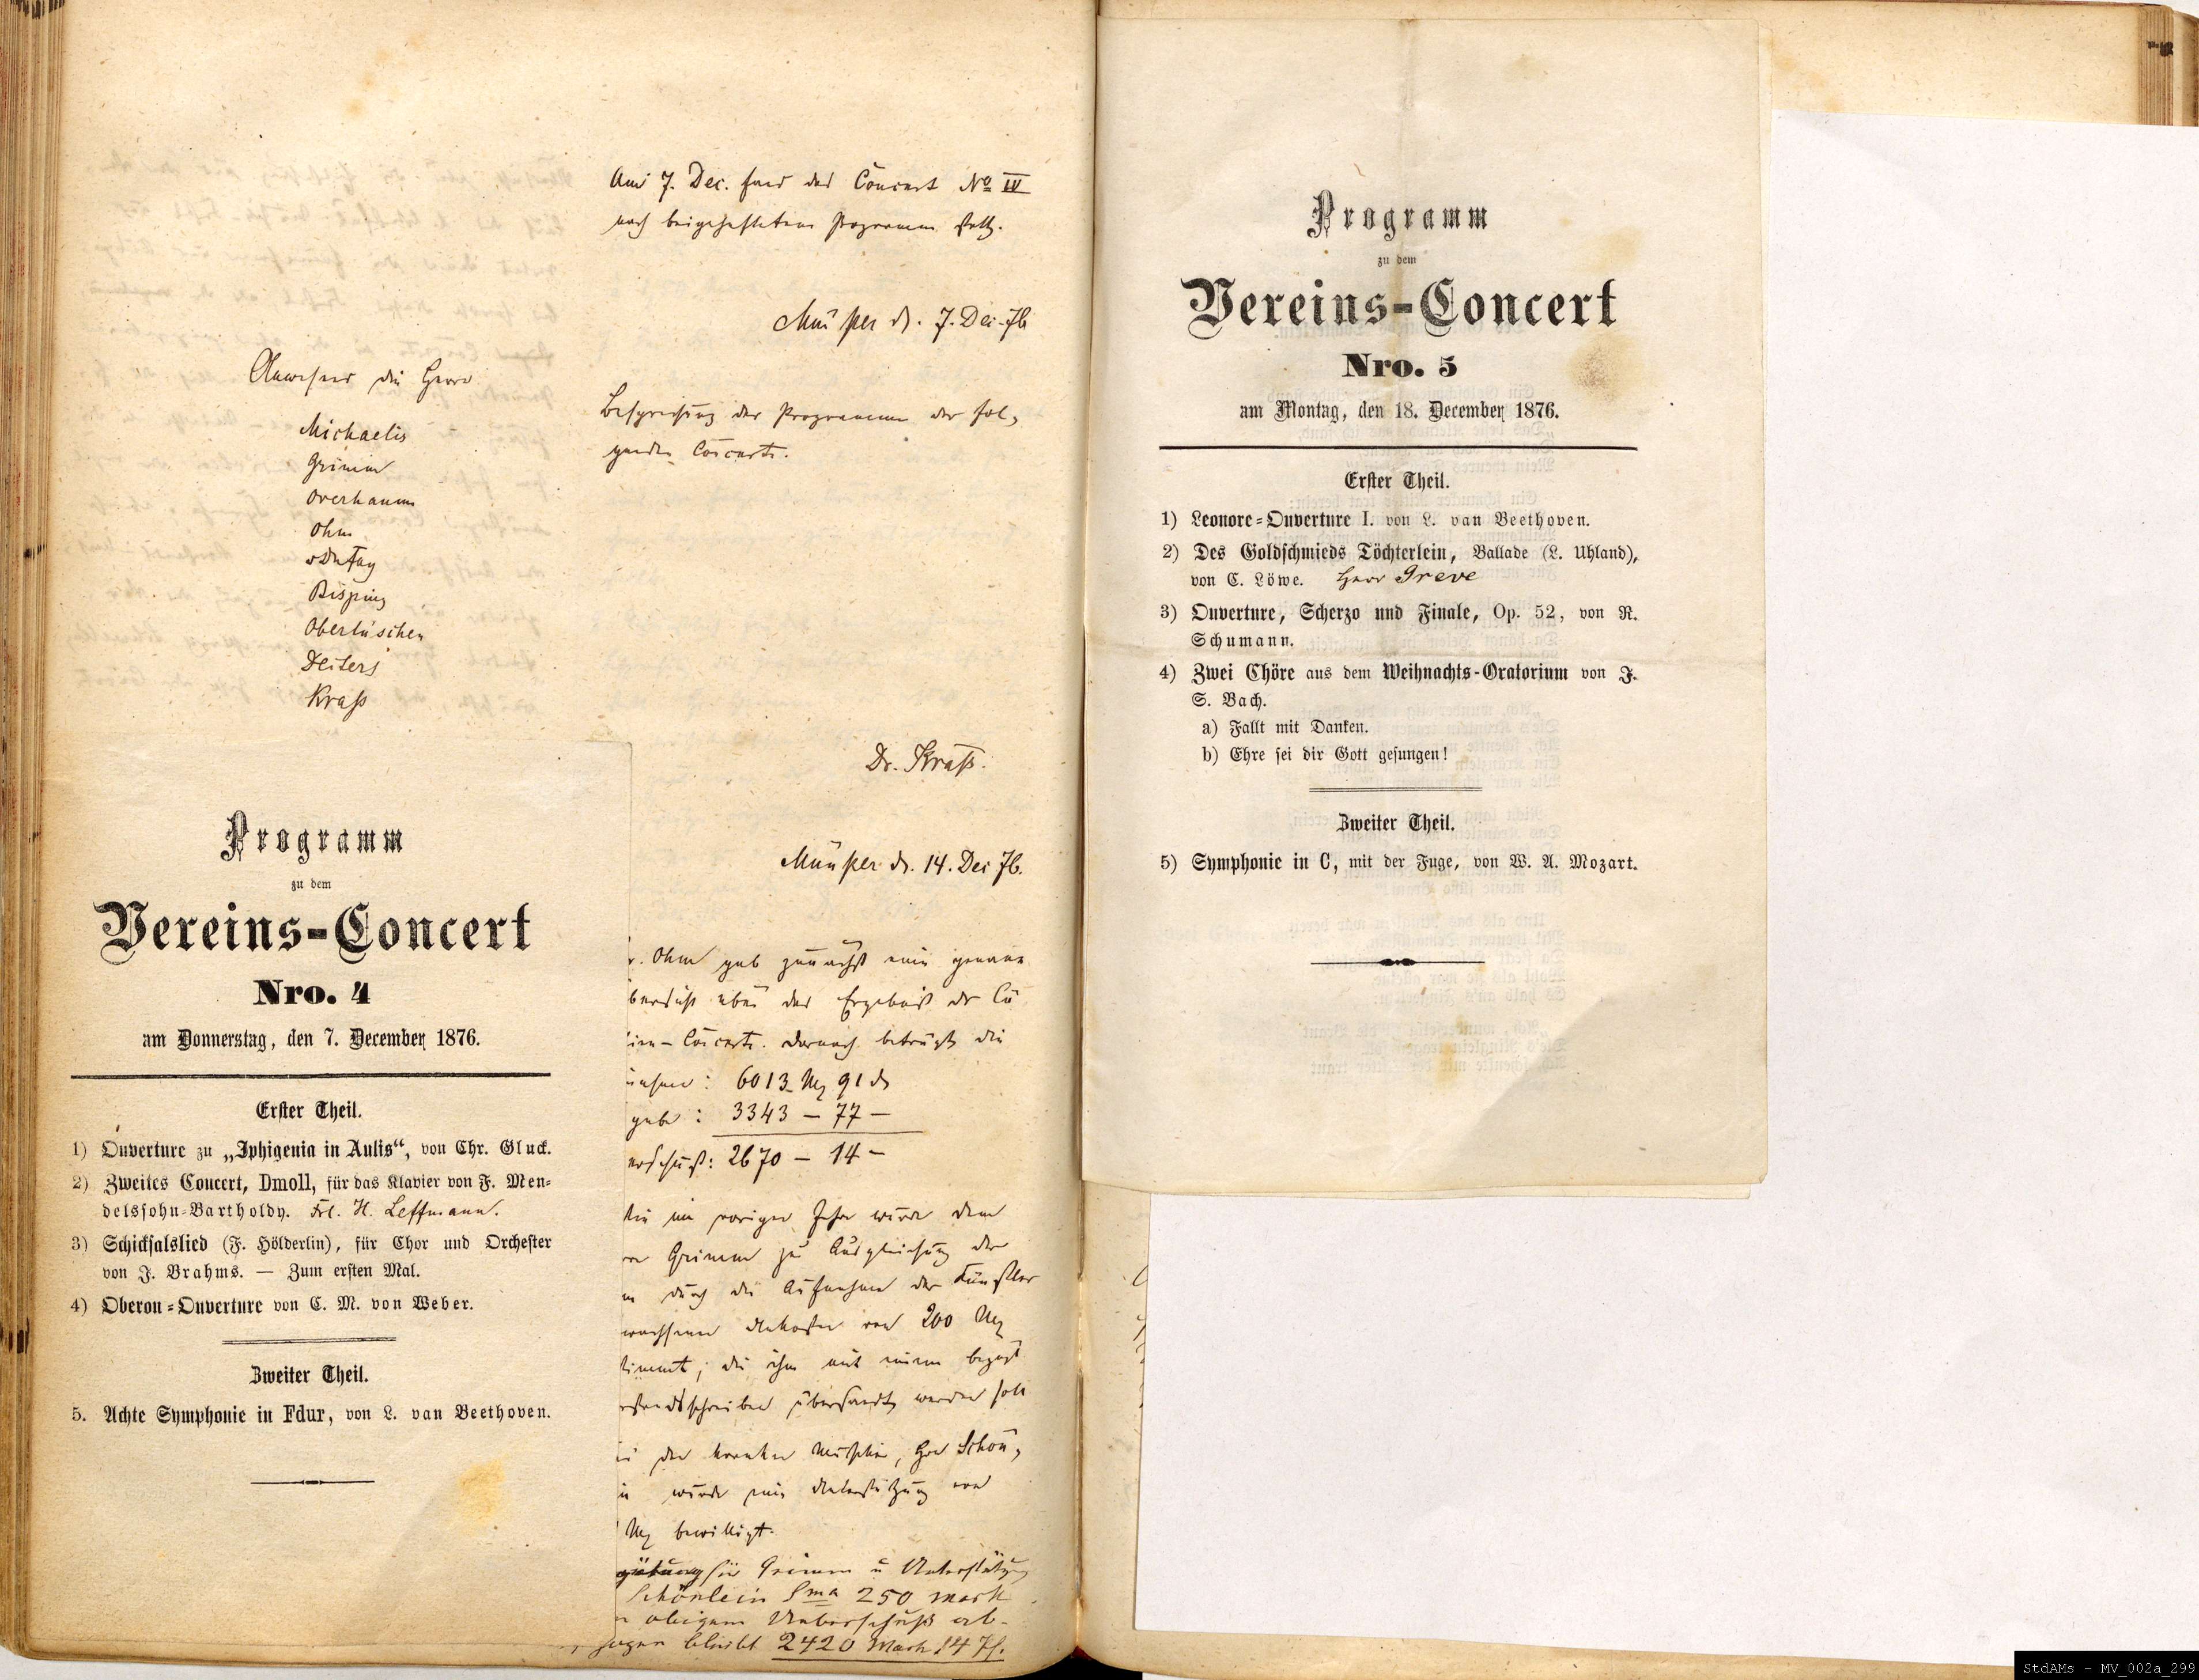 Am 7. Dec. fand das Concert No IV
nach beigeheftetem Programm statt.
Münster d. 7. Dec. 76
Anwesend die Herrn
Michaelis
Grimm
Overhamm
Ohm
v Druffel
Bisping
Obertüschen
Deiters
Kraß
Besprechung der Programme der fol-
genden Concerte.
Dr. Kraß.
Programm
zu dem
Vereins-Concert
Nro. 4
am Donnerstag, den 7. December 1876.
Erster Theil.
1) Ouverture zu „Iphigenia in Aulis“, von Chr. Gluck.
2) Zweites Concert, Dmoll, für das Klavier von F. Men-
delssohn-Bartholdy. Frl. H. Leffmann.
3) Schicksalslied (F. Hölderlin), für Chor und Orchester
von J. Brahms. — Zum ersten Mal.
4) Oberon-Ouverture von C. M. von Weber.
Zweiter Theil.
5. Achte Symphonie in Fdur, von L. van Beethoven.
Münster d. 14. Dec 76.
r. Ohm gab zunächst eine genaue
bersicht über das Ergebniß der Cä
ien-Concerte. Darnach beträgt die
nahme: 6013 M 91 d
gabe: 3343 — 77 —
erschuß: 2670 — 14 —
im vorigen Jahre wurde dem
Grimm zu Ausgleichung der
durch die Aufnahme der Künstler
wachsenen Unkosten von 200 M
timmt; die ihm mit einem bezügl
schreiben übersandt werden soll
der kranken Musiker, Hrn Schön-
n wurde eine Unterstützung von
M bewilligt.
gütung für Grimm u Unterstützung
Schönlein Sma 250 Mark
n obigem Ueberschuß ab-
zogen bleibt 2420 Mark 14 Pf.
Programm
zu dem
Vereins-Concert
Nro. 5
am Montag, den 18. December 1876.
Erster Theil.
1) Leonore-Ouverture I. von L. van Beethoven.
2) Des Goldschmieds Töchterlein, Ballade (L. Uhland),
von C. Löwe. Herr Greve
3) Ouverture, Scherzo und Finale, Op. 52, von R.
Schumann.
4) Zwei Chöre aus dem Weihnachts-Oratorium von J.
S. Bach.
a) Fallt mit Danken.
b) Ehre sei dir Gott gesungen!
Zweiter Theil.
5) Symphonie in C, mit der Fuge, von W. A. Mozart.
StdAMs - MV_002a_299